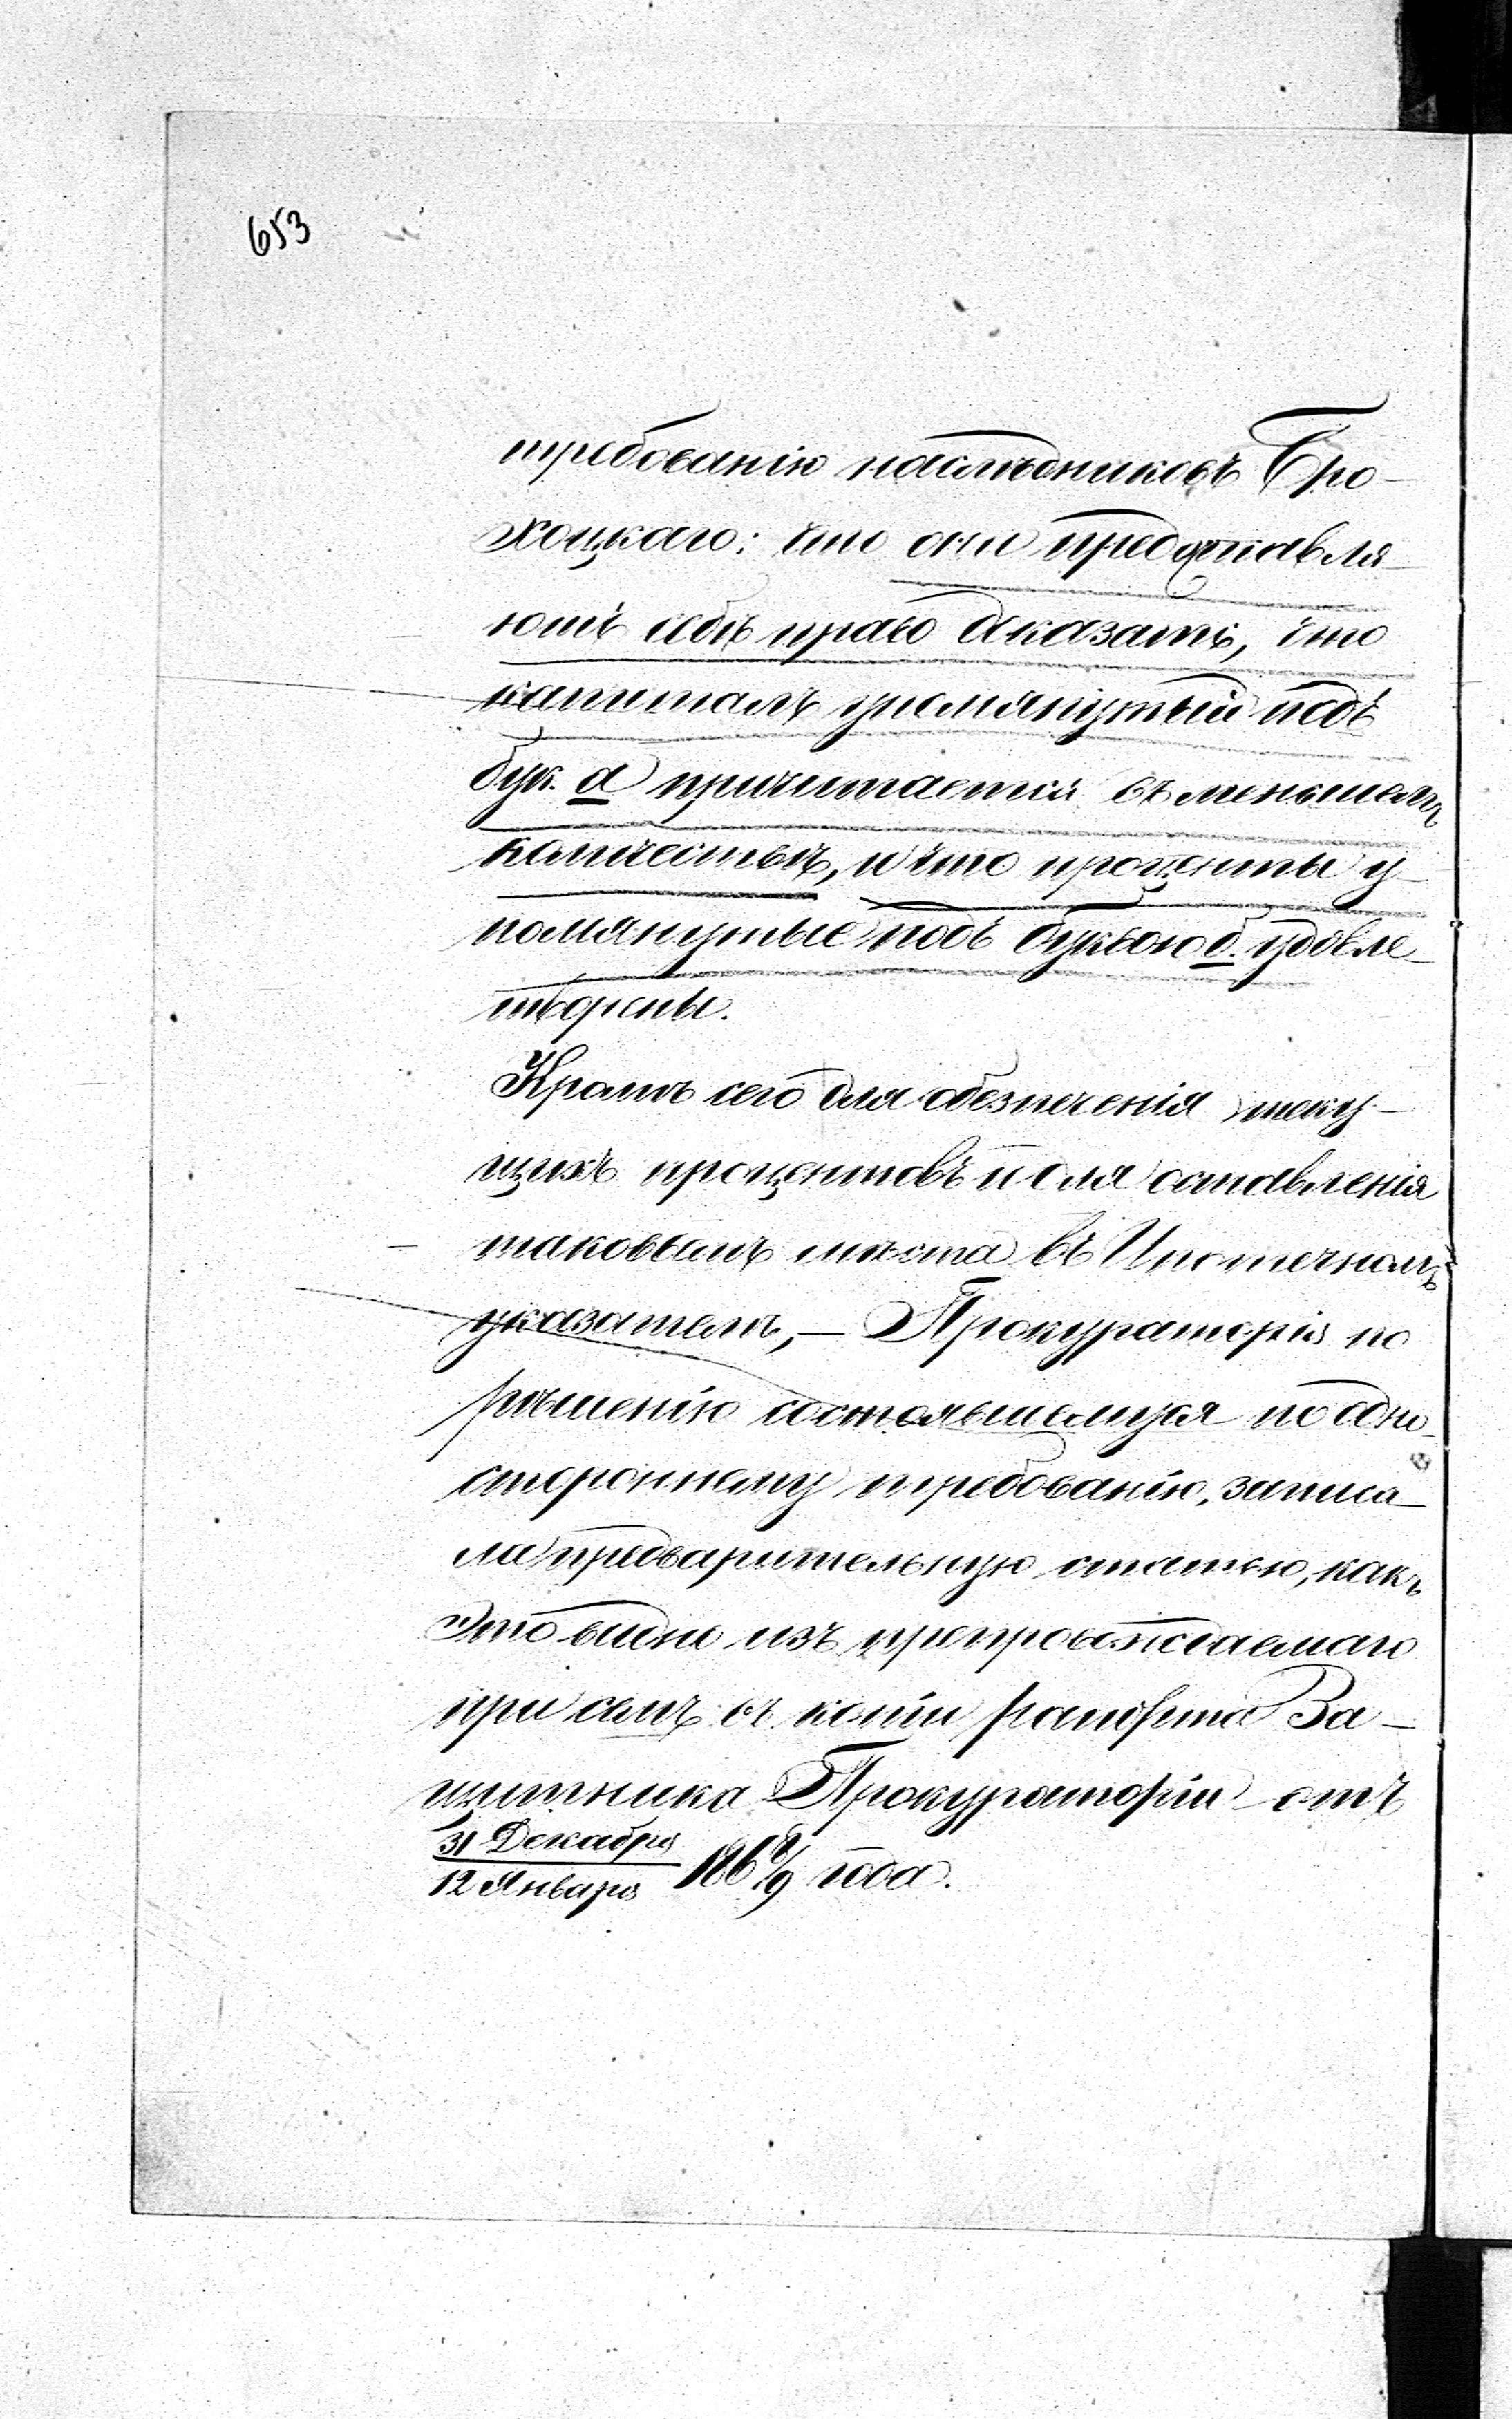 653
требованію наслѣдниковъ Бро-
хоцкаго: что они предоставля-
ютъ себѣ право доказать, что
капиталъ упомянутый подъ
бук. а причитается въ меньшемъ
количествѣ, и что проценты у-
помянутые подъ буквою б. удовле-
творены.
Кромѣ сего для обезпеченія теку-
щихъ процентовъ и для оставленія
таковымъ мѣста въ Ипотечномъ
указателѣ, — Прокураторія по
рѣшенію состоявшемуся по одно-
стороннему требованію, записа-
ла предварительную статью, какъ
это видно изъ препровождаемаго
при семъ въ копіи рапорта За-
щитника Прокураторіи отъ
31 Декабря
12 Января 186 8/9 года.